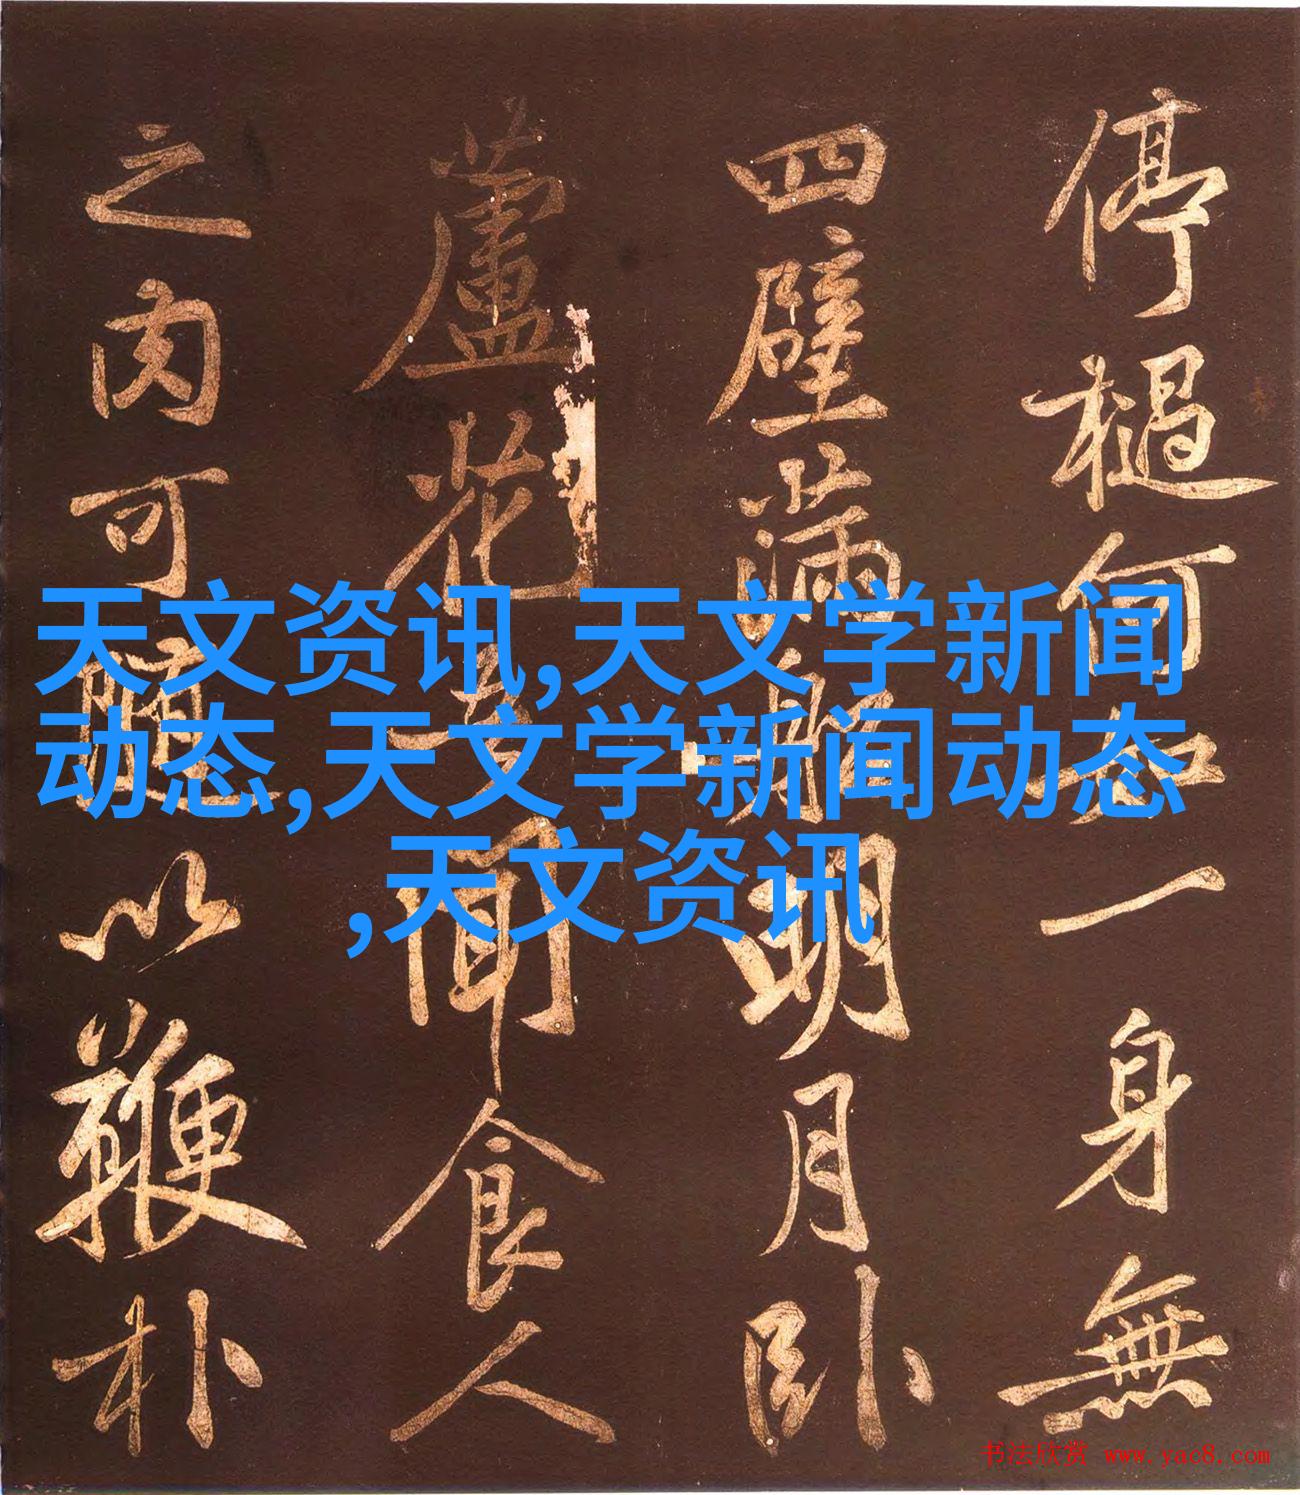 停檛何如一身無
四壁滿船明月卧
蘆花吾聞食人
之肉可隨以鞭朴
天文资讯,天文学新闻
动态,天文学新闻动态
,天文资讯
书法欣赏 www.yac8.com